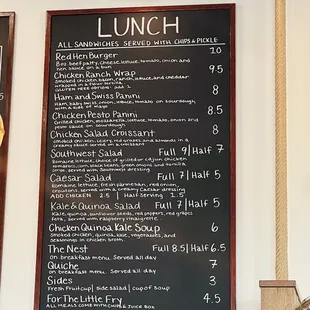 LUNCH
ALL SANDWICHES SERVED WITH CHIPS & PICKLE
Red Hen Burger 10
8oz beef patty, cheese, lettuce, tomato, onion and
hen sauce on a bun
Chicken Ranch Wrap 9.5
Smoked chicken, bacon, ranch, lettuce, and cheddar
wrapped in a flour tortilla
GLUTEN FREE options: add 2
Ham and Swiss Panini 8
Ham, baby swiss, onion, lettuce, tomato on sourdough
with a side of mayo
Chicken Pesto Panini 8.5
Grilled chicken, mozzarella, lettuce, tomato, onion and
pesto sauce on sourdough
Chicken Salad Croissant 8
Smoked chicken, celery, red grapes and almonds in a
creamy sauce served on a croissant
Southwest Salad Full 9/Half 7
Romaine lettuce, choice of grilled or cajun chicken,
tomatoes, corn, black beans, green onions and tortilla
strips, served with Southwest dressing
Caesar Salad Full 7/Half 5
Romaine lettuce, fresh parmesan, red onion,
croutons, served with a creamy Caesar dressing
ADD CHICKEN 2.5 | Half Serving 1.5
Kale & Quinoa Salad Full 7/Half 5
Kale, quinoa, sunflower seeds, red peppers, red grapes,
feta, served with raspberry vinaigrette
Chicken Quinoa Kale Soup 6
Smoked chicken, quinoa, kale, vegetables, and
seasonings in chicken broth
The Nest Full 8.5/Half 6.5
on breakfast menu. Served all day
Quiche 7
on breakfast menu. Served all day
Sides 3
Fresh Fruit cup | side salad | cup of soup
For The Little Fry 4.5
ALL MEALS COME WITH CHIPS & JUICE BOX